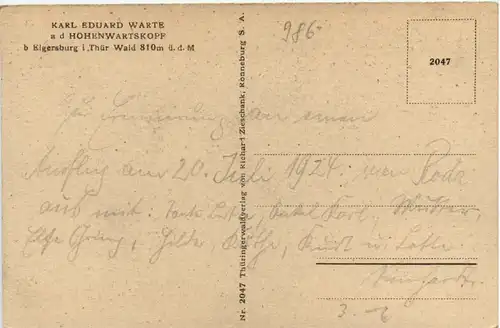 KARL EDUARD WARTE
a d HOHENWARTSKOPF
b Elgersburg i, Thür Wald 810m ü. d. M
986-
2047
Zur Erinnerung an einen
Ausflug am 20. Juli 1924 von Roda
aus mit: Tante Luise, Onkel Karl, Mutter,
Else, Hilde, Käthe, Kurt u. Lotte
3.-
Nr. 2047 Thüringerwaldverlag von Richard Zieschank, Ronneburg S. A.